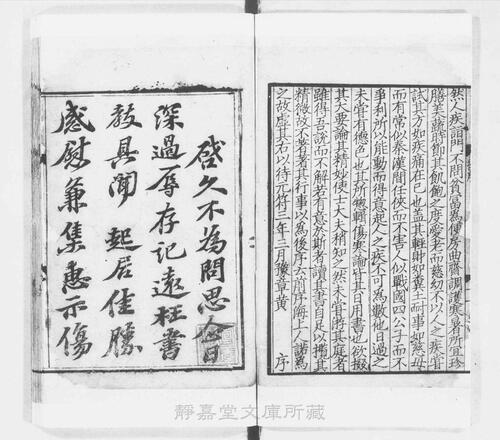 然人疾詣門不問貧富為便房曲齋調護寒暑所宜珍
膳美饘節其飢飽之度愛老而慈幼不以人之疾嘗
試其方如疾痛在己也蓋其輕財如糞土耐事如慈母
而有常似秦漢間任俠而不害人似戰國四公子而不
爭利所以能動而得意起人之疾不可為數他日過之
未嘗有德色也其所總輯傷寒論皆其日用書也欲掇
其大要論其精妙使士大夫稍知之然未嘗游其庭者
雖得吾說而不解若有意於斯者讀其書自足以攬其
精微故不著著其行事以為後序云前序海上人諾為
之故虛其右以待元符三年三月豫章黃 序
啓久不為問思念日
深過辱存記遠枉書
教具聞 起居佳勝
感慰兼集惠示傷
靜嘉堂文庫所藏